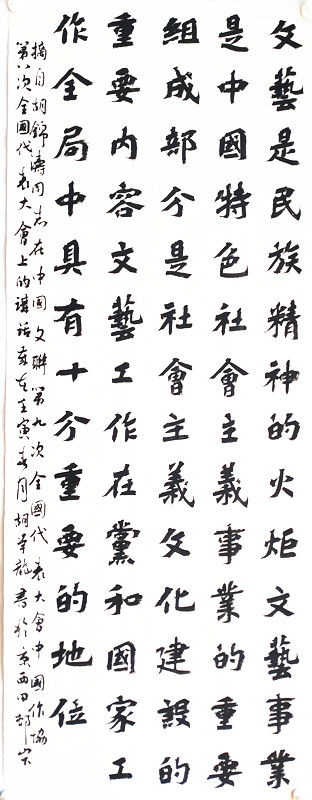 文藝是民族精神的火炬文藝事業
是中國特色社會主義事業的重要
組成部分是社會主義文化建設的
重要內容文藝工作在黨和國家工
作全局中具有十分重要的地位
摘自胡錦濤同志在中國文聯第九次全國代表大會中國作協
第八次全國代表大會上的講話歲在壬寅春月胡書於京西田村